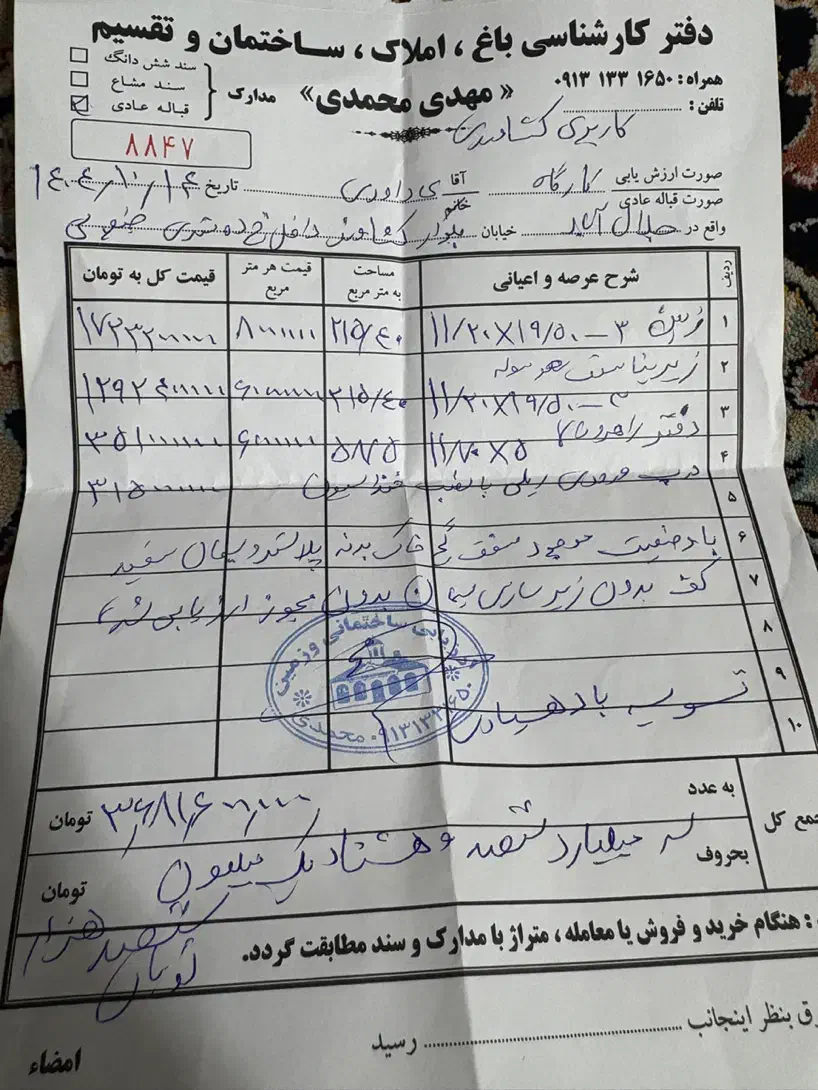 دفتر کارشناسی باغ ، املاک ، ساختمان و تقسیم
همراه : ۱۶۵۰ ۱۳۳ ۰۹۱۳
« مهدی محمدی»
مدارک
سند شش دانگ
سند مشاع
قباله عادی
تلفن :
کاربری کشاورزی
۸۸۴۷
صورت ارزش یابی
صورت قباله عادی
کارگاه
آقا
خانم
ی داوری
تاریخ ۱۴۰۴/۱۰/۱۴
واقع در جلال آباد خیابان بلوار کشاورز داخل
جنوبی
ردیف
شرح عرصه و اعیانی
مساحت به متر مربع
قیمت هر متر مربع
قیمت کل به تومان
۱ ۱۱/۲۰×۱۹/۵۰-۳ ۲۱۵/۴۰ ۸۰۰۰۰۰۰ ۱۷۲۳۲۰۰۰۰۰
۲ زیربنا سقف
۳ ۱۱/۲۰×۱۹/۵۰-۳ ۲۱۵/۴۰ ۶۰۰۰۰۰۰ ۱۲۹۲۴۰۰۰۰۰
دفتر
۴ ۶۰۰۰۰۰۰ ۳۵۱۰۰۰۰۰۰
۵ درب ورودی ریلی با نصب ۳۱۵۰۰۰۰۰۰
۶ با وضعیت موجود سقف گچ خاک بدنه پلاستر و سیمان سفید
۷ کف بدون زیرسازی سیمان بدون مجوز ارزیابی شد
۸
۹
۱۰
ارزیابی ساختمانی و زمین
محمدی ۰۹۱۳۱۳۳۱۶۵۰
جمع کل
به عدد ۳/۶۸۱/۶۰۰/۰۰۰ تومان
بحروف سه میلیارد ششصد و هشتاد یک میلیون تومان
ششصد هزار
تومان
: هنگام خرید و فروش یا معامله ، متراژ با مدارک و سند مطابقت گردد.
بنظر اینجانب
رسید
امضاء